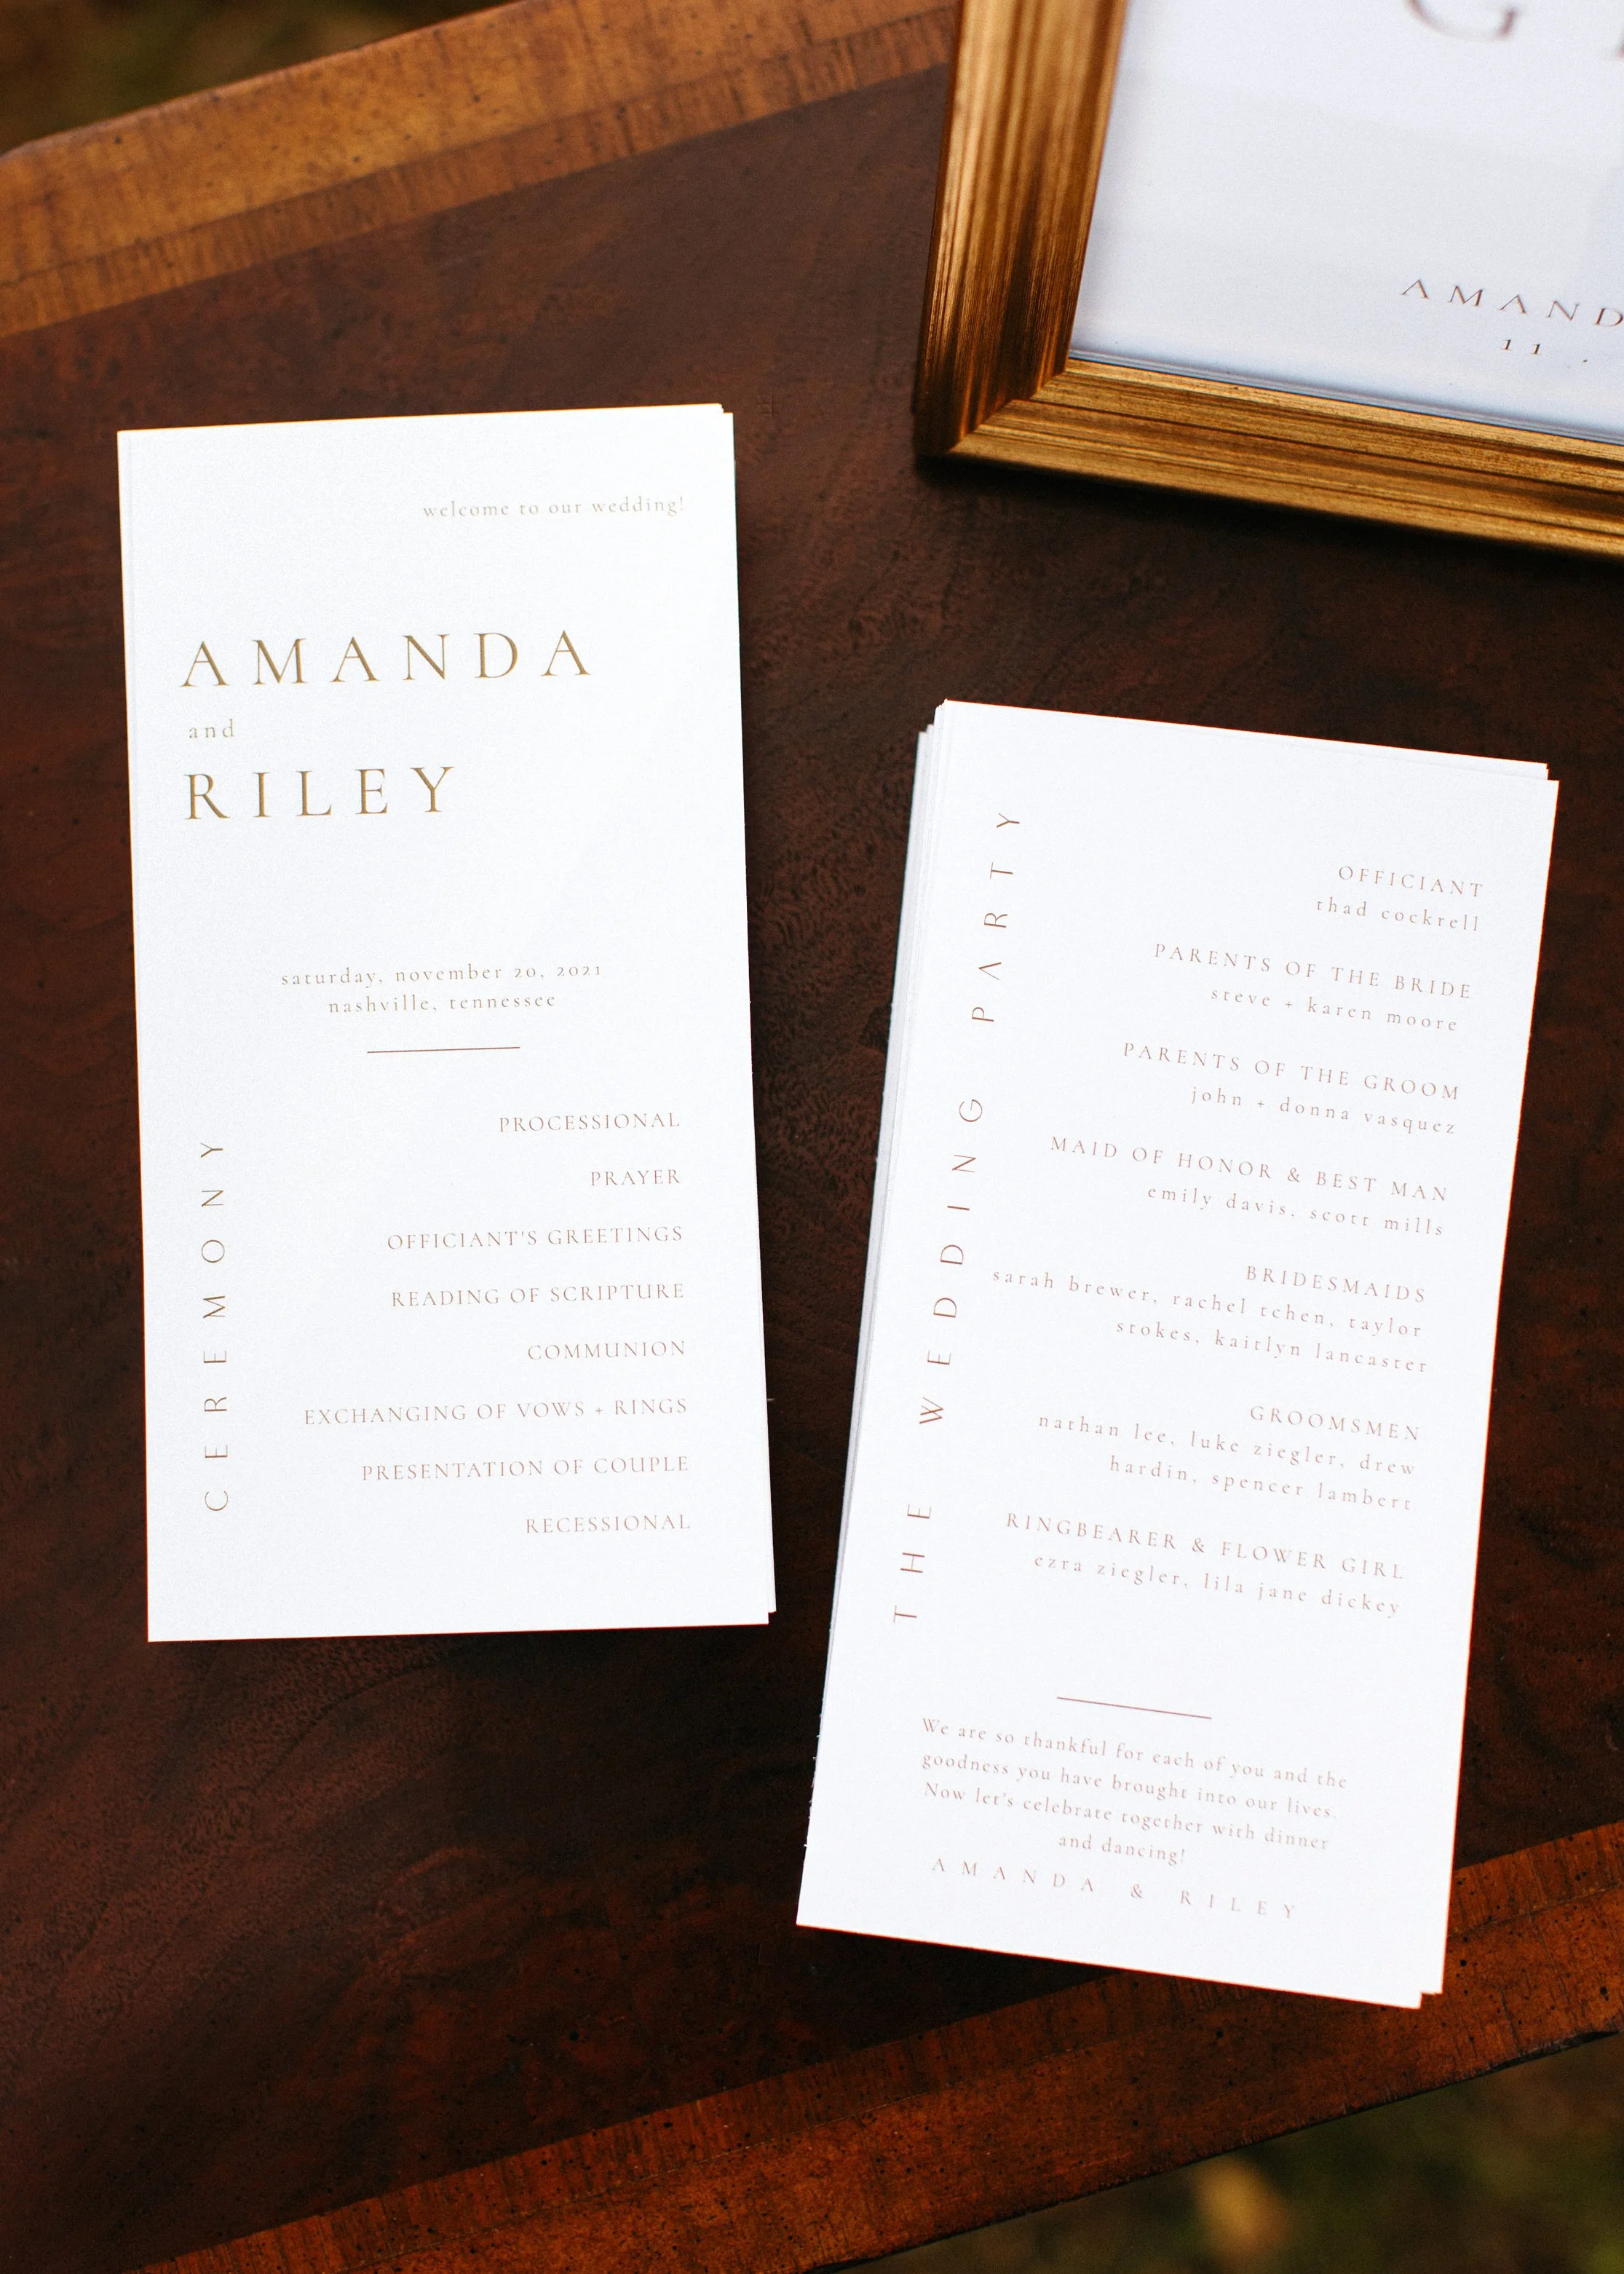 welcome to our wedding!
AMANDA
and
RILEY
saturday, november 20, 2021
nashville, tennessee
CEREMONY
PROCESSIONAL
PRAYER
OFFICIANT'S GREETINGS
READING OF SCRIPTURE
COMMUNION
EXCHANGING OF VOWS + RINGS
PRESENTATION OF COUPLE
RECESSIONAL
THE WEDDING PARTY
OFFICIANT
thad cockrell
PARENTS OF THE BRIDE
steve + karen moore
PARENTS OF THE GROOM
john + donna vasquez
MAID OF HONOR & BEST MAN
emily davis, scott mills
BRIDESMAIDS
sarah brewer, rachel tchen, taylor
stokes, kaitlyn lancaster
GROOMSMEN
nathan lee, luke ziegler, drew
hardin, spencer lambert
RINGBEARER & FLOWER GIRL
ezra ziegler, lila jane dickey
We are so thankful for each of you and the
goodness you have brought into our lives.
Now let's celebrate together with dinner
and dancing!
AMANDA & RILEY
G
AMAND
11 .